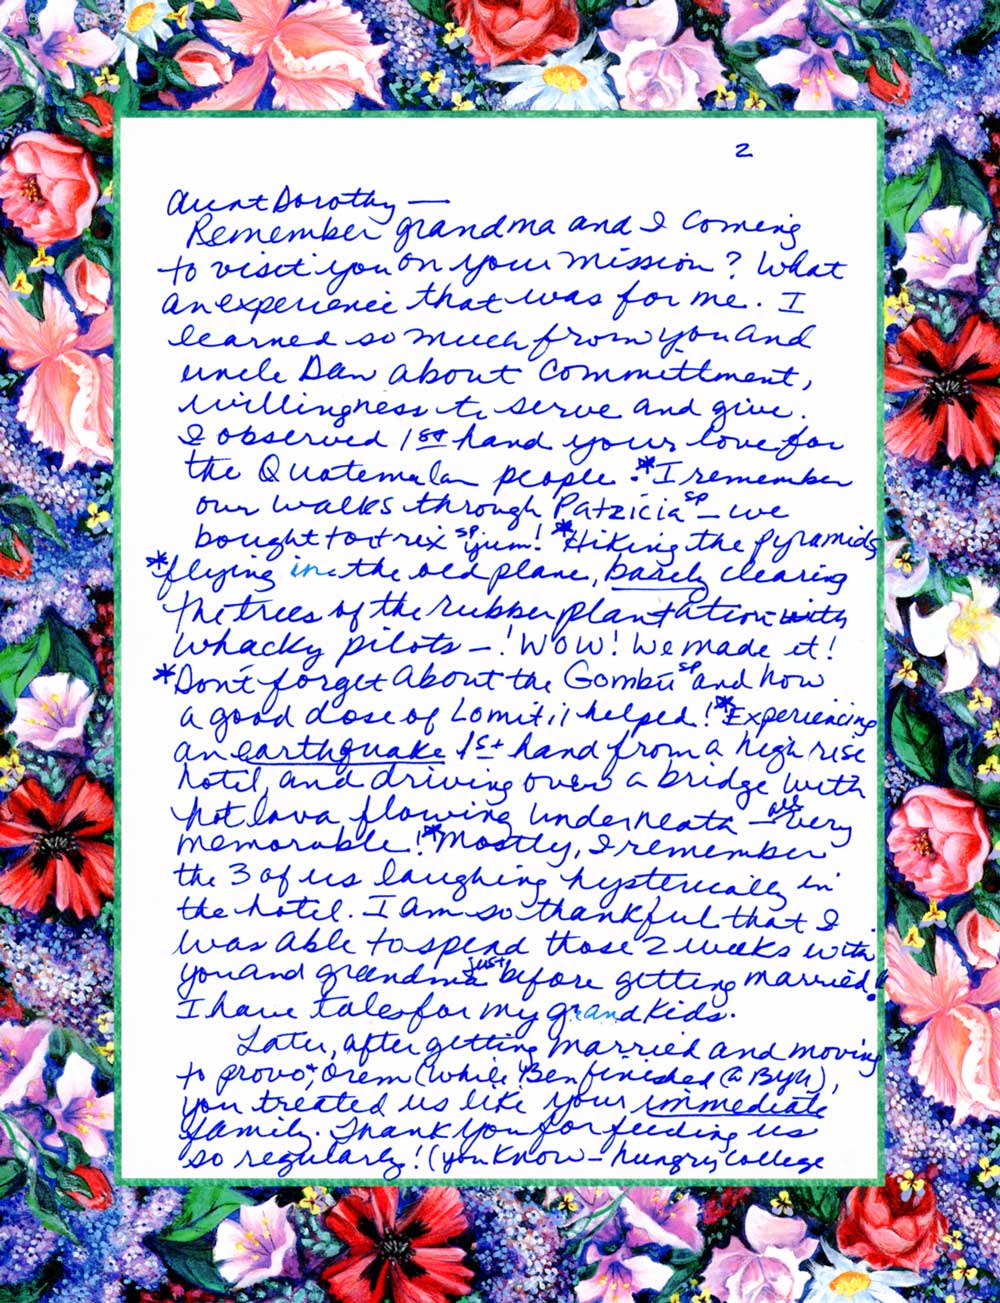 2
Aunt Dorothy —
Remember grandma and I coming
to visit you on your mission? What
an experience that was for me. I
learned so much from you and
uncle Dan about committment,
willingness to serve and give.
I observed 1st hand your love for
the Quatemalan people. *I remember
our walks through Patzicia sp – we
bought tortrix sp yum! *Hiking the pyramids
*flying in the old plane, barely clearing
the trees of the rubber plantation with
whacky pilots –! WOW! We made it!
*Don't forget about the Gombii sp and how
a good dose of Lomitil helped! *Experiencing
an earthquake 1st hand from a high rise
hotel, and driving over a bridge with
hot lava flowing underneath – all very
memorable! *Mostly, I remember
the 3 of us laughing hysterically in
the hotel. I am so thankful that I
was able to spend those 2 weeks with
you and grandma just before getting married.
I have tales for my grandkids.
Later, after getting married and moving
to provo + Orem (while Ben finished @ BYU),
you treated us like your immediate
family. Thank you for feeding us
so regularly! (you know – hungry college